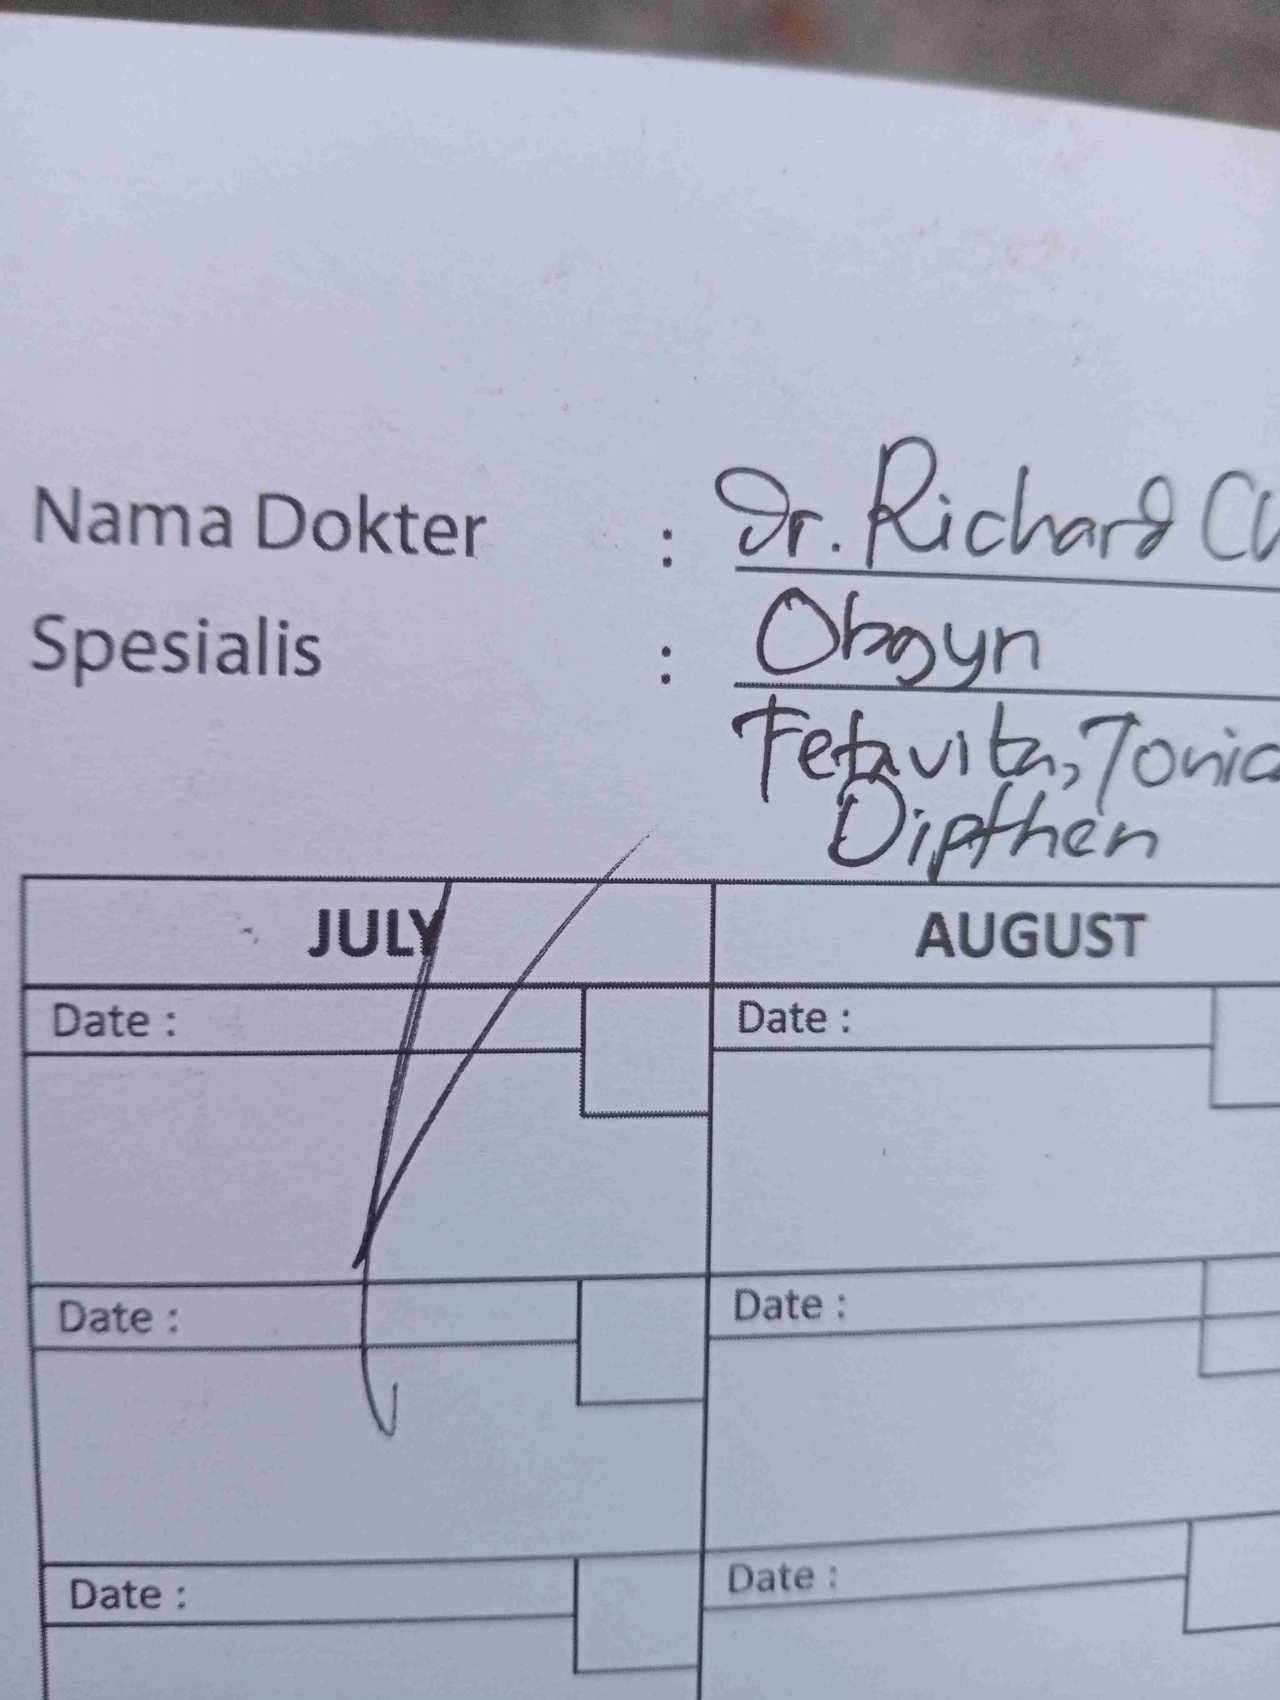 Nama Dokter : Dr. Richard
Spesialis : Obgyn
Fetavita,
Dipthen
JULY AUGUST
Date : Date :
Date : Date :
Date : Date :